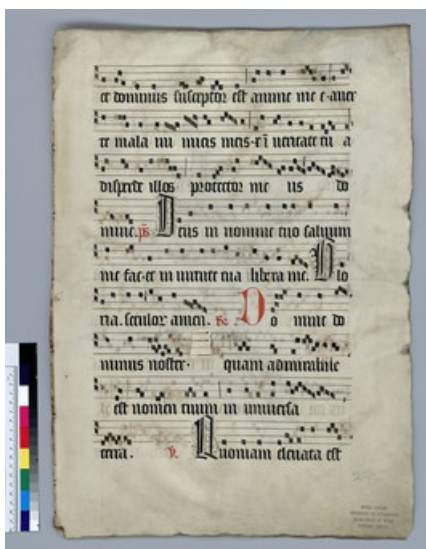 et dominus susceptor est anime me e auer
te mala in imicis meis et ī ueritate tu a
disperde illos protector me us do
mine. ps Deus in nomine tuo saluum
me fac et in uirtute tua libera me. Glo
ria. seculor amen. Do mine do
minus noster quam admirabile
est nomen tuum in uniuersa
terra. v. Quoniam eleuata est